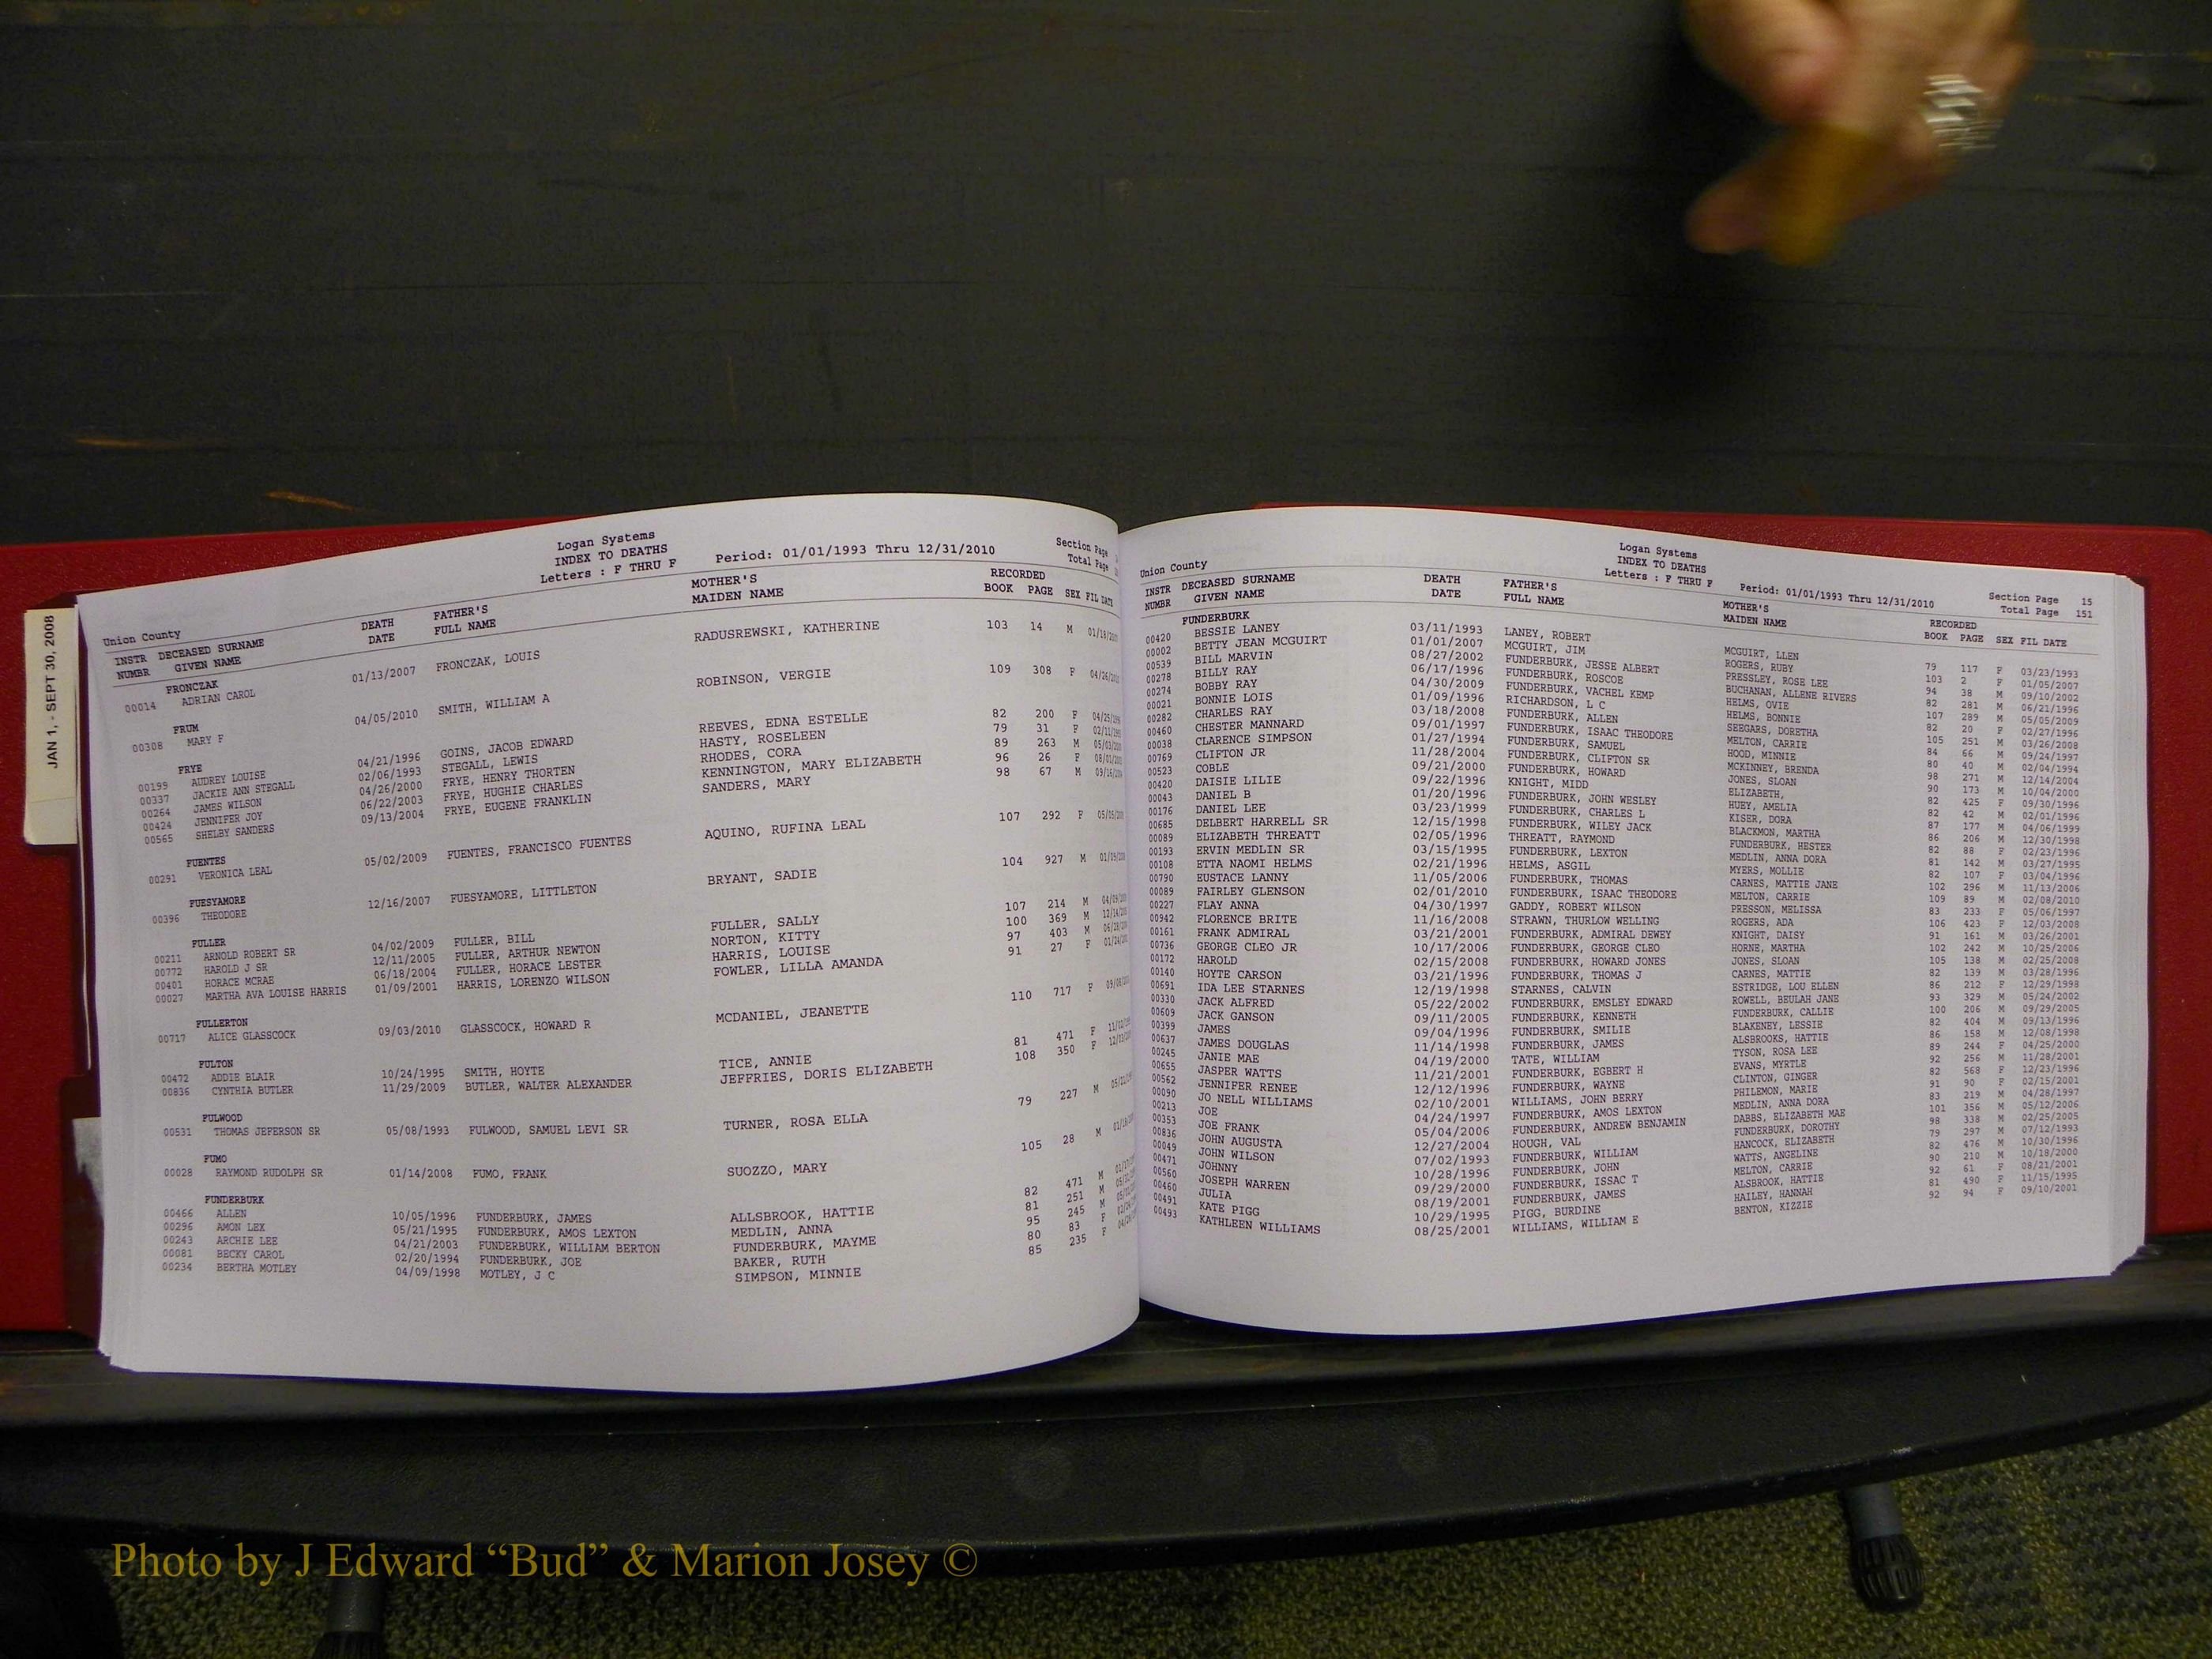 JAN 1, - SEPT 30, 2008
Logan Systems
INDEX TO DEATHS
Letters : F THRU F
Period: 01/01/1993 Thru 12/31/2010
Section Page
Total Page
Union County
INSTR DECEASED SURNAME DEATH FATHER'S MOTHER'S RECORDED
NUMBR GIVEN NAME DATE FULL NAME MAIDEN NAME BOOK PAGE SEX FIL DATE
FRONCZAK
00014 ADRIAN CAROL 01/13/2007 FRONCZAK, LOUIS RADUSREWSKI, KATHERINE 103 14 M
FRUM
00308 MARY F 04/05/2010 SMITH, WILLIAM A ROBINSON, VERGIE 109 308 F
FRYE
00199 AUDREY LOUISE 04/21/1996 GOINS, JACOB EDWARD REEVES, EDNA ESTELLE 82 200 F
00337 JACKIE ANN STEGALL 02/06/1993 STEGALL, LEWIS HASTY, ROSELEEN 79 31 F
00264 JAMES WILSON 04/26/2000 FRYE, HENRY THORTEN RHODES, CORA 89 263 M
00424 JENNIFER JOY 06/22/2003 FRYE, HUGHIE CHARLES KENNINGTON, MARY ELIZABETH 96 26 F
00565 SHELBY SANDERS 09/13/2004 FRYE, EUGENE FRANKLIN SANDERS, MARY 98 67 M
FUENTES
00291 VERONICA LEAL 05/02/2009 FUENTES, FRANCISCO FUENTES AQUINO, RUFINA LEAL 107 292 F
FUESYAMORE
00396 THEODORE 12/16/2007 FUESYAMORE, LITTLETON BRYANT, SADIE 104 927 M
FULLER
00211 ARNOLD ROBERT SR 04/02/2009 FULLER, BILL FULLER, SALLY 107 214 M
00772 HAROLD J SR 12/11/2005 FULLER, ARTHUR NEWTON NORTON, KITTY 100 369 M
00401 HORACE MCRAE 06/18/2004 FULLER, HORACE LESTER HARRIS, LOUISE 97 403 M
00027 MARTHA AVA LOUISE HARRIS 01/09/2001 HARRIS, LORENZO WILSON FOWLER, LILLA AMANDA 91 27 F
FULLERTON
00717 ALICE GLASSCOCK 09/03/2010 GLASSCOCK, HOWARD R MCDANIEL, JEANETTE 110 717 F
FULTON
00472 ADDIE BLAIR 10/24/1995 SMITH, HOYTE TICE, ANNIE 81 471 F
00836 CYNTHIA BUTLER 11/29/2009 BUTLER, WALTER ALEXANDER JEFFRIES, DORIS ELIZABETH 108 350 F
FULWOOD
00531 THOMAS JEFERSON SR 05/08/1993 FULWOOD, SAMUEL LEVI SR TURNER, ROSA ELLA 79 227 M
FUMO
00028 RAYMOND RUDOLPH SR 01/14/2008 FUMO, FRANK SUOZZO, MARY 105 28 M
FUNDERBURK
00466 ALLEN 10/05/1996 FUNDERBURK, JAMES ALLSBROOK, HATTIE 82 471 M
00296 AMON LEX 05/21/1995 FUNDERBURK, AMOS LEXTON MEDLIN, ANNA 81 251 M
00243 ARCHIE LEE 04/21/2003 FUNDERBURK, WILLIAM BERTON FUNDERBURK, MAYME 95 245 M
00081 BECKY CAROL 02/20/1994 FUNDERBURK, JOE BAKER, RUTH 80 83 F
00234 BERTHA MOTLEY 04/09/1998 MOTLEY, J C SIMPSON, MINNIE 85 235 F
Logan Systems
INDEX TO DEATHS
Letters : F THRU F
Period: 01/01/1993 Thru 12/31/2010
Section Page 15
Total Page 151
Union County
INSTR DECEASED SURNAME DEATH FATHER'S MOTHER'S RECORDED
NUMBR GIVEN NAME DATE FULL NAME MAIDEN NAME BOOK PAGE SEX FIL DATE
FUNDERBURK
00420 BESSIE LANEY 03/11/1993 LANEY, ROBERT MCGUIRT, LLEN 79 117 F 03/23/1993
00002 BETTY JEAN MCGUIRT 01/01/2007 MCGUIRT, JIM ROGERS, RUBY 103 2 F 01/05/2007
00539 BILL MARVIN 08/27/2002 FUNDERBURK, JESSE ALBERT PRESSLEY, ROSE LEE 94 38 M 09/10/2002
00278 BILLY RAY 06/17/1996 FUNDERBURK, ROSCOE BUCHANAN, ALLENE RIVERS 82 281 M 06/21/1996
00274 BOBBY RAY 04/30/2009 FUNDERBURK, VACHEL KEMP HELMS, OVIE 107 289 M 05/05/2009
00021 BONNIE LOIS 01/09/1996 RICHARDSON, L C HELMS, BONNIE 82 20 F 02/27/1996
00282 CHARLES RAY 03/18/2008 FUNDERBURK, ALLEN SEEGARS, DORETHA 105 251 M 03/26/2008
00460 CHESTER MANNARD 09/01/1997 FUNDERBURK, ISAAC THEODORE MELTON, CARRIE 84 66 M 09/24/1997
00038 CLARENCE SIMPSON 01/27/1994 FUNDERBURK, SAMUEL HOOD, MINNIE 80 40 M 02/04/1994
00769 CLIFTON JR 11/28/2004 FUNDERBURK, CLIFTON SR MCKINNEY, BRENDA 98 271 M 12/14/2004
00523 COBLE 09/21/2000 FUNDERBURK, HOWARD JONES, SLOAN 90 173 M 10/04/2000
00420 DAISIE LILIE 09/22/1996 KNIGHT, MIDD ELIZABETH, 82 425 F 09/30/1996
00043 DANIEL B 01/20/1996 FUNDERBURK, JOHN WESLEY HUEY, AMELIA 82 42 M 02/01/1996
00176 DANIEL LEE 03/23/1999 FUNDERBURK, CHARLES L KISER, DORA 87 177 M 04/06/1999
00685 DELBERT HARRELL SR 12/15/1998 FUNDERBURK, WILEY JACK BLACKMON, MARTHA 86 206 M 12/30/1998
00089 ELIZABETH THREATT 02/05/1996 THREATT, RAYMOND FUNDERBURK, HESTER 82 88 F 02/23/1996
00193 ERVIN MEDLIN SR 03/15/1995 FUNDERBURK, LEXTON MEDLIN, ANNA DORA 81 142 M 03/27/1995
00108 ETTA NAOMI HELMS 02/21/1996 HELMS, ASGIL MYERS, MOLLIE 82 107 F 03/04/1996
00790 EUSTACE LANNY 11/05/2006 FUNDERBURK, THOMAS CARNES, MATTIE JANE 102 296 M 11/13/2006
00089 FAIRLEY GLENSON 02/01/2010 FUNDERBURK, ISAAC THEODORE MELTON, CARRIE 109 89 M 02/08/2010
00227 FLAY ANNA 04/30/1997 GADDY, ROBERT WILSON PRESSON, MELISSA 83 233 F 05/06/1997
00942 FLORENCE BRITE 11/16/2008 STRAWN, THURLOW WELLING ROGERS, ADA 106 423 F 12/03/2008
00161 FRANK ADMIRAL 03/21/2001 FUNDERBURK, ADMIRAL DEWEY KNIGHT, DAISY 91 161 M 03/26/2001
00736 GEORGE CLEO JR 10/17/2006 FUNDERBURK, GEORGE CLEO HORNE, MARTHA 102 242 M 10/25/2006
00172 HAROLD 02/15/2008 FUNDERBURK, HOWARD JONES JONES, SLOAN 105 138 M 02/25/2008
00140 HOYTE CARSON 03/21/1996 FUNDERBURK, THOMAS J CARNES, MATTIE 82 139 M 03/28/1996
00691 IDA LEE STARNES 12/19/1998 STARNES, CALVIN ESTRIDGE, LOU ELLEN 86 212 F 12/29/1998
00330 JACK ALFRED 05/22/2002 FUNDERBURK, EMSLEY EDWARD ROWELL, BEULAH JANE 93 329 M 05/24/2002
00609 JACK GANSON 09/11/2005 FUNDERBURK, KENNETH FUNDERBURK, CALLIE 100 206 M 09/29/2005
00399 JAMES 09/04/1996 FUNDERBURK, SMILIE BLAKENEY, LESSIE 82 404 M 09/13/1996
00637 JAMES DOUGLAS 11/14/1998 FUNDERBURK, JAMES ALSBROOKS, HATTIE 86 158 M 12/08/1998
00245 JANIE MAE 04/19/2000 TATE, WILLIAM TYSON, ROSA LEE 89 244 F 04/25/2000
00655 JASPER WATTS 11/21/2001 FUNDERBURK, EGBERT H EVANS, MYRTLE 92 256 M 11/28/2001
00562 JENNIFER RENEE 12/12/1996 FUNDERBURK, WAYNE CLINTON, GINGER 82 568 F 12/23/1996
00090 JO NELL WILLIAMS 02/10/2001 WILLIAMS, JOHN BERRY PHILEMON, MARIE 91 90 F 02/15/2001
00213 JOE 04/24/1997 FUNDERBURK, AMOS LEXTON MEDLIN, ANNA DORA 83 219 M 04/28/1997
00353 JOE FRANK 05/04/2006 FUNDERBURK, ANDREW BENJAMIN DABBS, ELIZABETH MAE 101 356 M 05/12/2006
00836 JOHN AUGUSTA 12/27/2004 HOUGH, VAL FUNDERBURK, DOROTHY 98 338 M 02/25/2005
00049 JOHN WILSON 07/02/1993 FUNDERBURK, WILLIAM HANCOCK, ELIZABETH 79 297 M 07/12/1993
00471 JOHNNY 10/28/1996 FUNDERBURK, JOHN WATTS, ANGELINE 82 476 M 10/30/1996
00560 JOSEPH WARREN 09/29/2000 FUNDERBURK, ISSAC T MELTON, CARRIE 90 210 M 10/18/2000
00460 JULIA 08/19/2001 FUNDERBURK, JAMES ALSBROOK, HATTIE 92 61 F 08/21/2001
00491 KATE PIGG 10/29/1995 PIGG, BURDINE HAILEY, HANNAH 81 490 F 11/15/1995
00493 KATHLEEN WILLIAMS 08/25/2001 WILLIAMS, WILLIAM E BENTON, KIZZIE 92 94 F 09/10/2001
Photo by J Edward “Bud” & Marion Josey ©